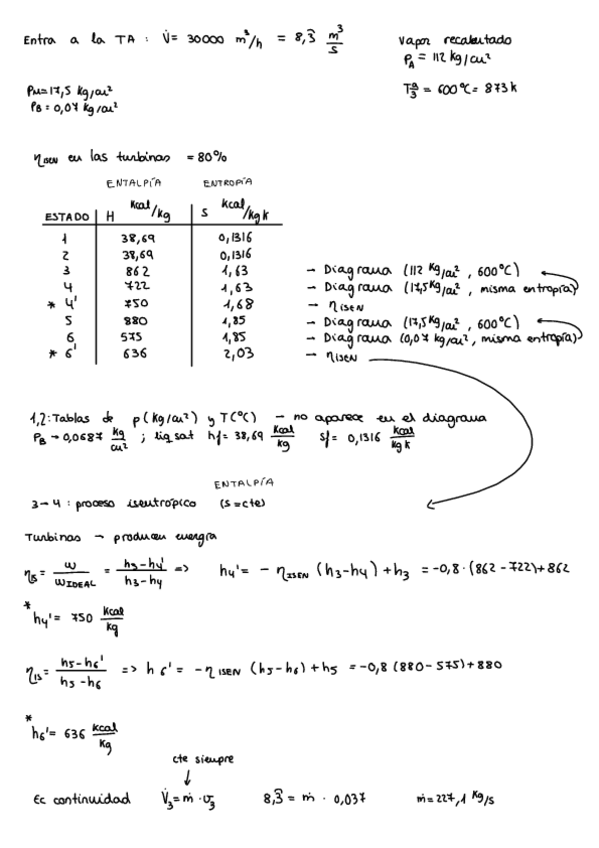 Entra a la TA : V̇= 30000 m³/h = 8,3̂ m³/s
Vapor recalentado
P_A = 112 kg/cm²
P_M=17,5 kg/cm²
P_B = 0,07 kg/cm²
T_3^a = 600ºC = 873 k
η_ISEN en las turbinas = 80%
ENTALPÍA ENTROPÍA
ESTADO H kcal/kg S kcal/kg k
1 38,69 0,1316
2 38,69 0,1316
3 862 1,63 → Diagrama (112 kg/cm², 600ºC)
4 722 1,63 → Diagrama (17,5 kg/cm², misma entropía)
* 4' 750 1,68 → η_ISEN
5 880 1,85 → Diagrama (17,5 kg/cm², 600ºC)
6 575 1,85 → Diagrama (0,07 kg/cm², misma entropía)
* 6' 636 2,03 → η_ISEN
1,2: Tablas de p(kg/cm²) y T(ºC) → no aparece en el diagrama
P_B → 0,0687 kg/cm² ; liq sat hf= 38,69 kcal/kg sf= 0,1316 kcal/kg k
ENTALPÍA
3→4 : proceso isentrópico (s=cte)
Turbinas → producen energía
η_S = w/w_IDEAL = h3-h4'/h3-h4 => h4' = - η_ISEN (h3-h4) + h3 = -0,8·(862-722)+862
* h4' = 750 kcal/kg
η_IS = h5-h6'/h5-h6 => h6' = -η_ISEN (h5-h6) + h5 = -0,8 (880-575)+880
* h6' = 636 kcal/kg
cte siempre
Ec continuidad V̇_3 = ṁ · υ_3 8,3̂ = ṁ · 0,037 ṁ = 227,1 kg/s